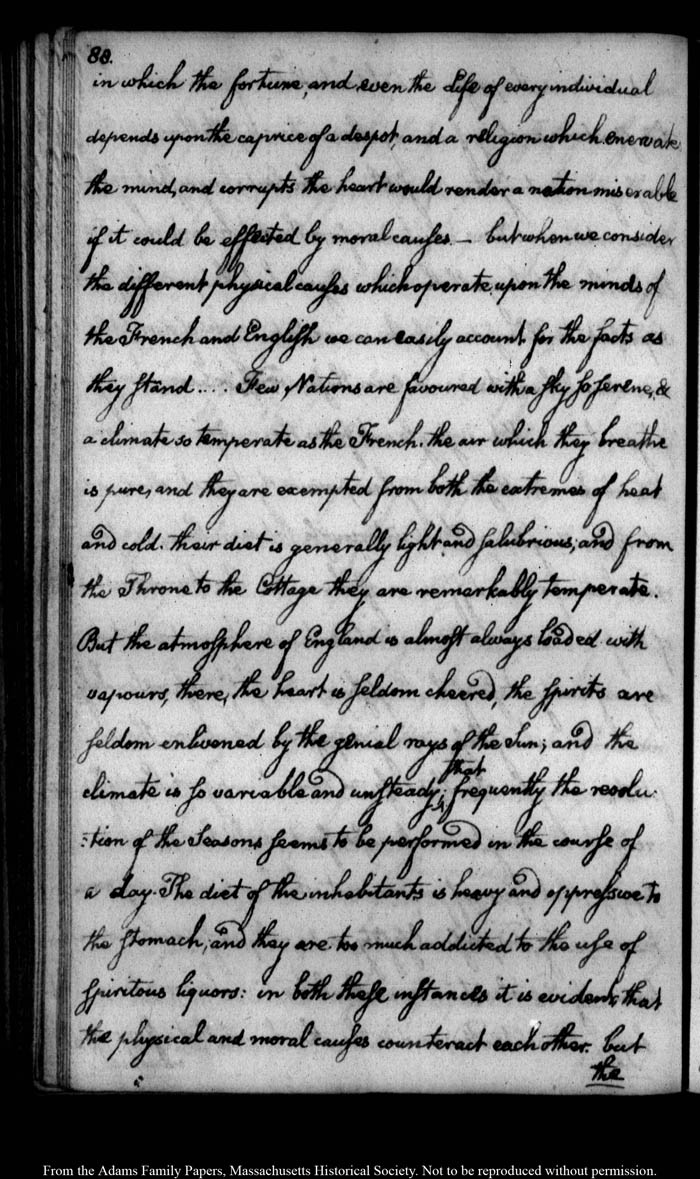 88.
in which the fortune, and even the Life of every individual
depends upon the caprice of a despot, and a religion which enervate
the mind, and corrupts the heart would render a nation miserable
if it could be effected by moral cauſes — but when we consider
the different physical cauſes which operate, upon the minds of
the French and Engliſh we can easily account for the facts as
they ſtand.... Few, Nations are favoured with a ſky ſo ſerene, &
a climate so temperate as the French. the air which they breathe
is pure, and they are exempted from both the extremes of heat
and cold. their diet is generally light and ſalubrious; and from
the Throne to the Cottage they are remarkably temperate.
But the atmoſphere of England is almoſt always loaded with
vapours, there, the heart is ſeldom cheered, the ſpirits are
ſeldom enlivened by the genial rays of the Sun; and the
climate is ſo variable and unſteady; that frequently the revolu:
:tion of the Seasons ſeems to be performed in the courſe of
a day. The diet of the inhabitants is heavy and oppreſsive to
the ſtomach, and they are too much addicted to the uſe of
ſpiritous liquors: in both theſe inſtances it is evident, that
the physical and moral cauſes counteract each other. but
the
From the Adams Family Papers, Massachusetts Historical Society. Not to be reproduced without permission.